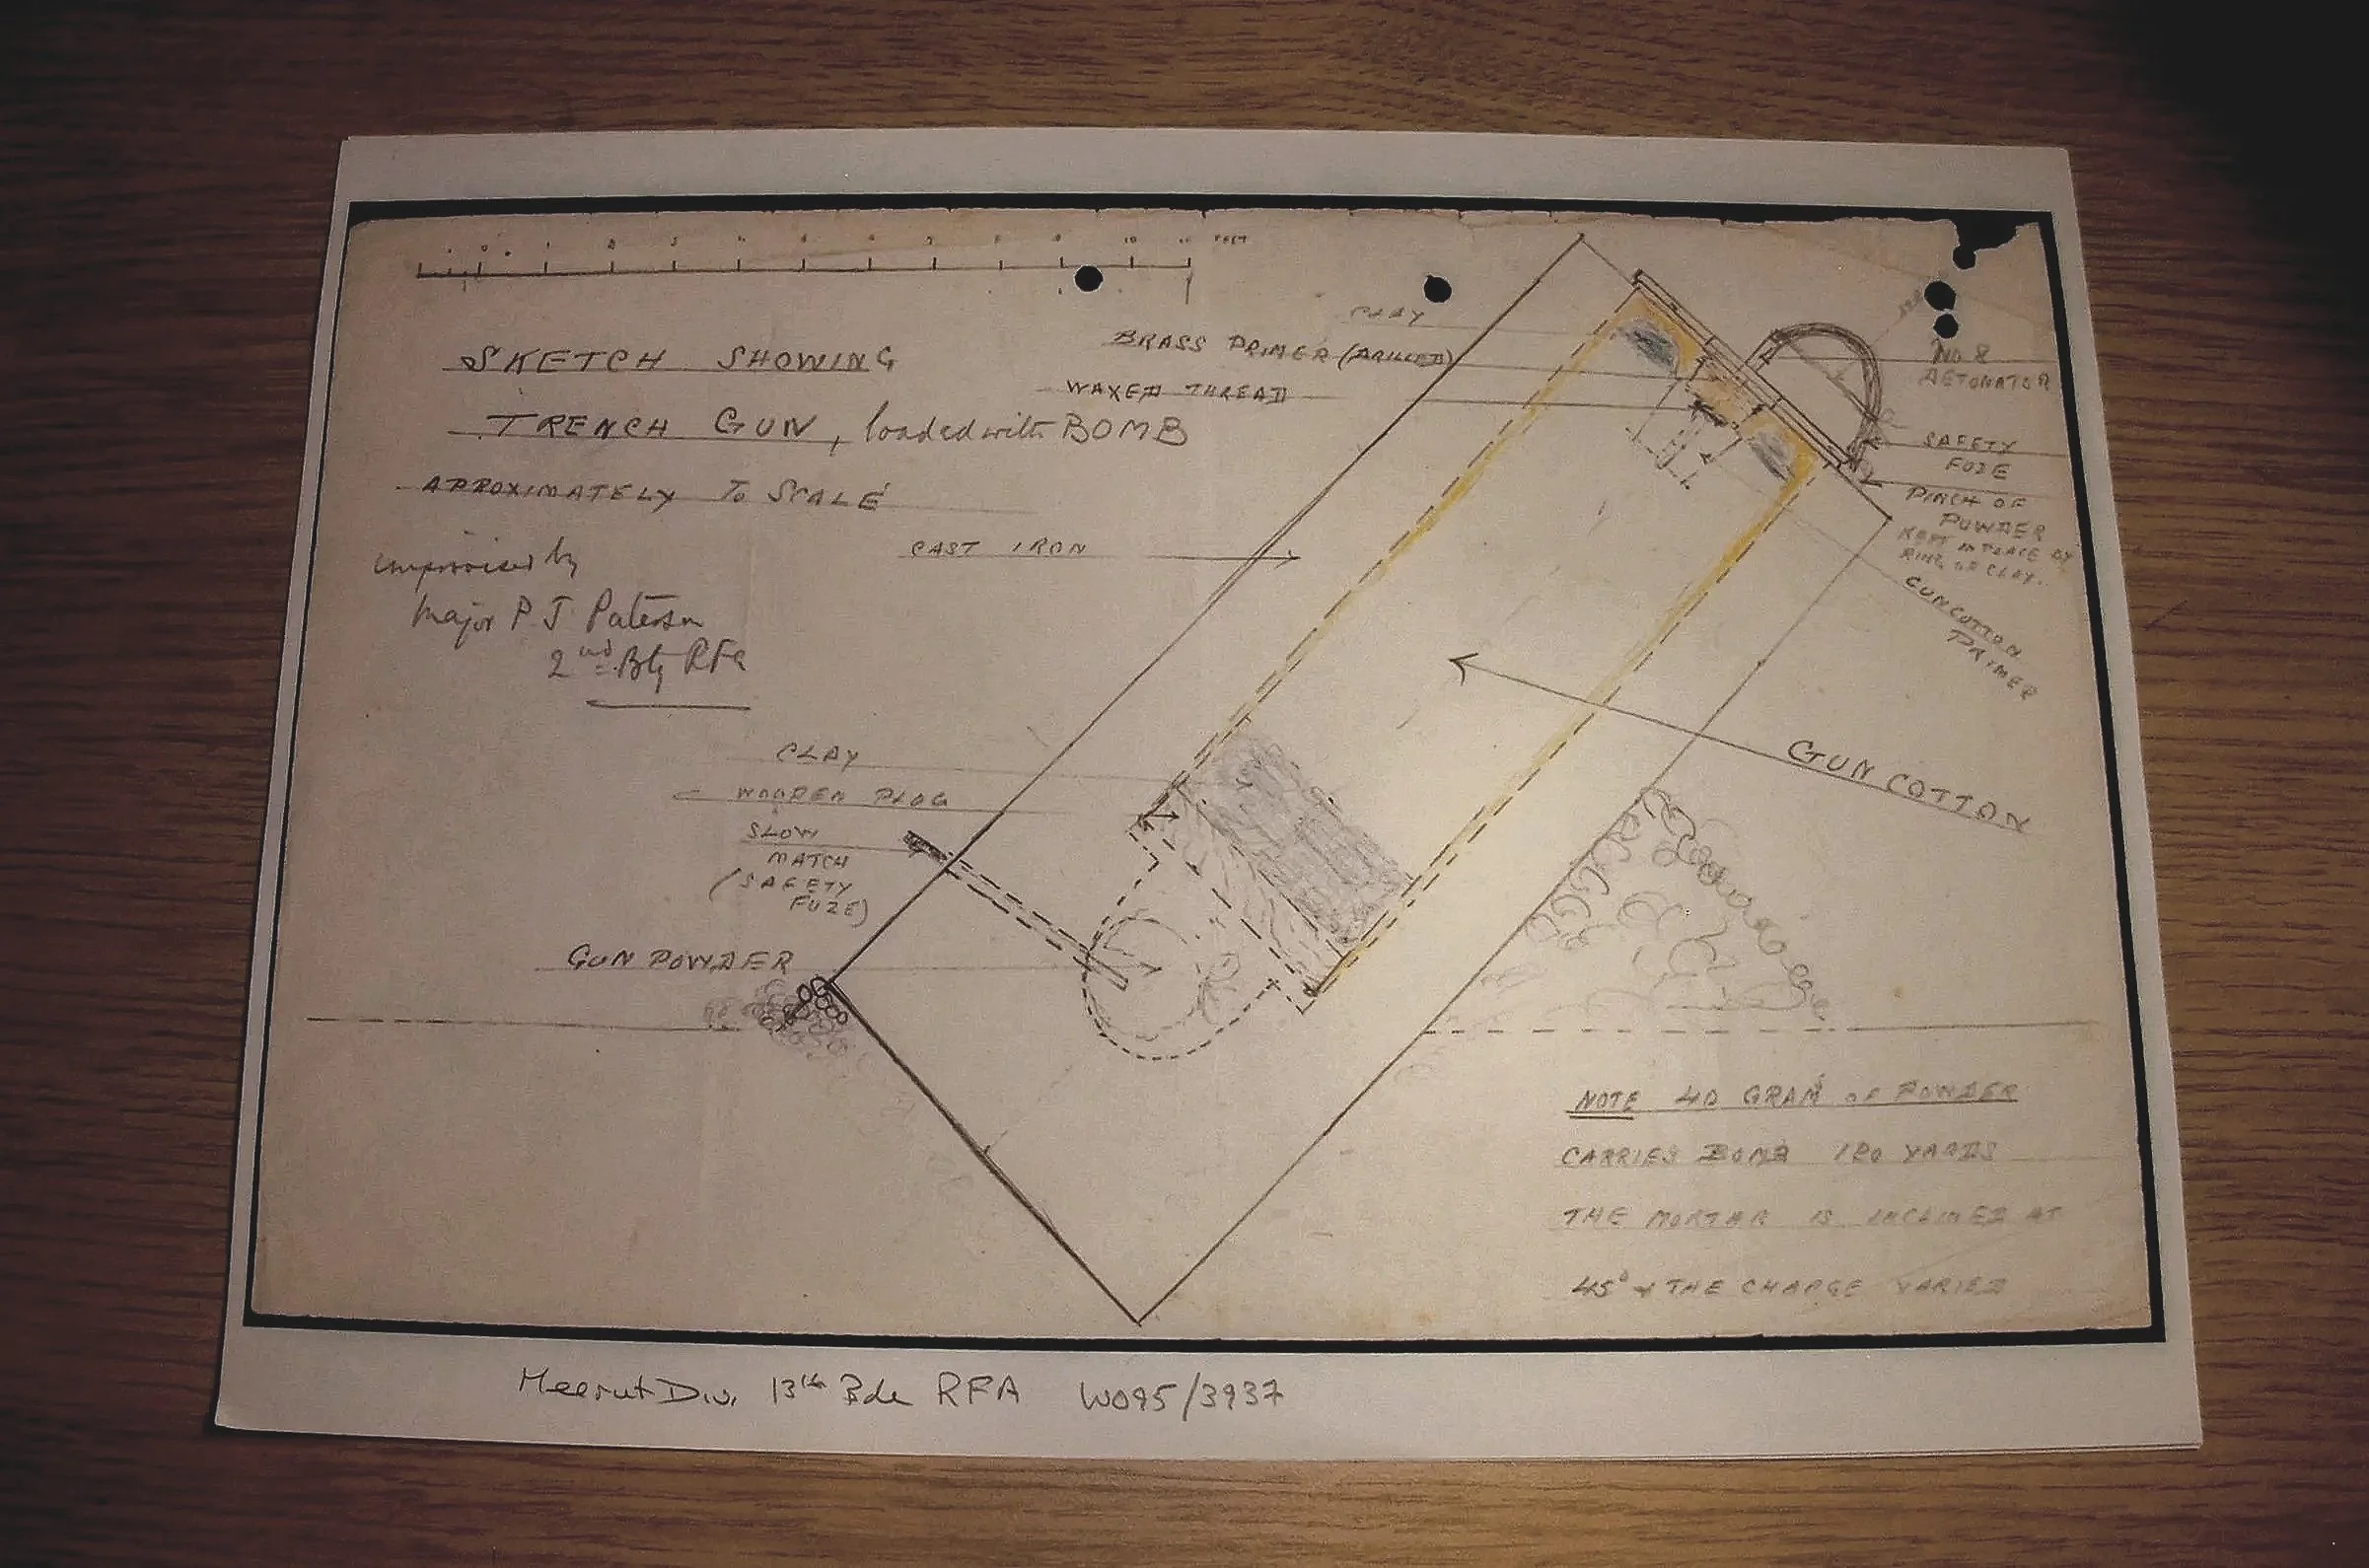 0 1 2 3 4 5 6 7 8 9 10 11 FEET
SKETCH SHOWING
TRENCH GUN, loaded with BOMB
APPROXIMATELY TO SCALE
improvised by
Major P J Paterson
2nd Bty RFA
CLAY
BRASS PRIMER (DRILLED)
WAXED THREAD
CAST IRON
No 8
DETONATOR
SAFETY
FUZE
PINCH OF
POWDER
KEPT IN PLACE BY
RING OF CLAY.
GUNCOTTON
PRIMER
GUN COTTON
CLAY
WOODEN PLUG
SLOW
MATCH
(SAFETY
FUZE)
GUN POWDER
NOTE 40 GRAM OF POWDER
CARRIES BOMB YARDS
THE MORTAR IS INCLINED AT
45° & THE CHARGE VARIED
Meerut Div. 13th Bde RFA WO95/3937